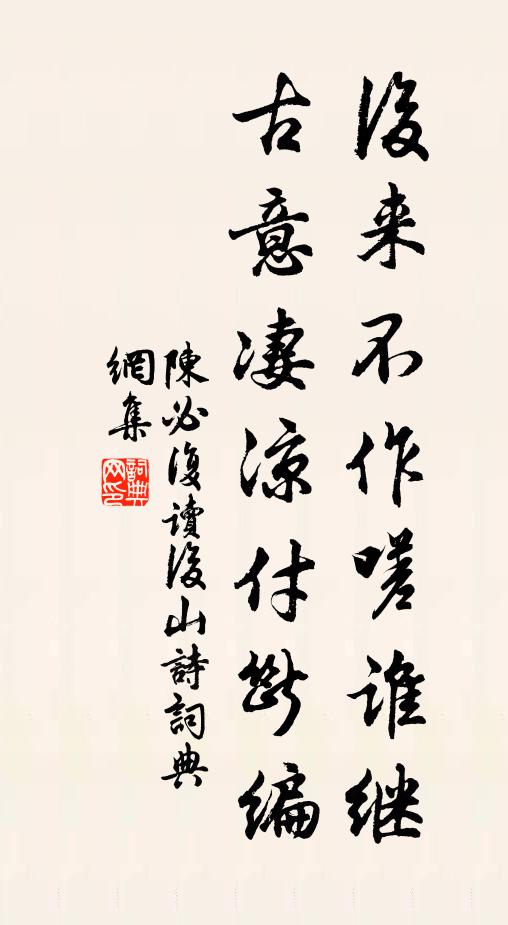 後来不作嗟谁继
古意凄凉付斷编
陳必復讀後山詩詞典
網集
詞典網印